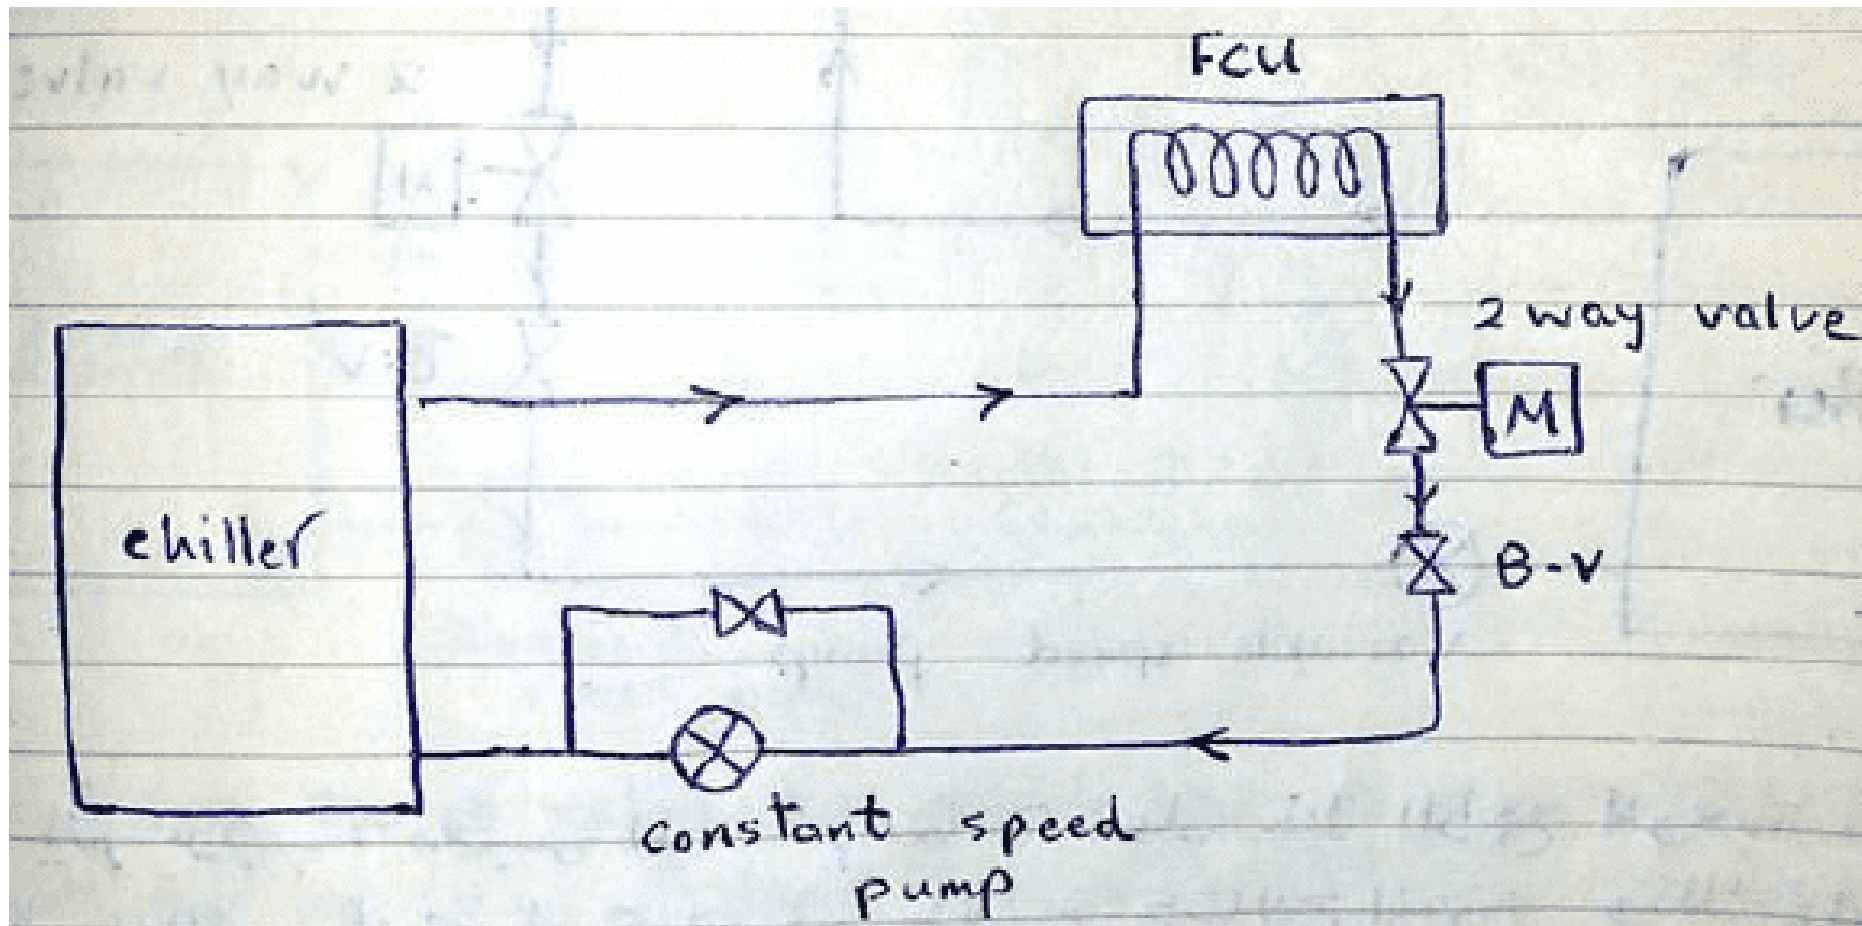 FCU
2 way valve
M
chiller
B-V
constant speed
pump